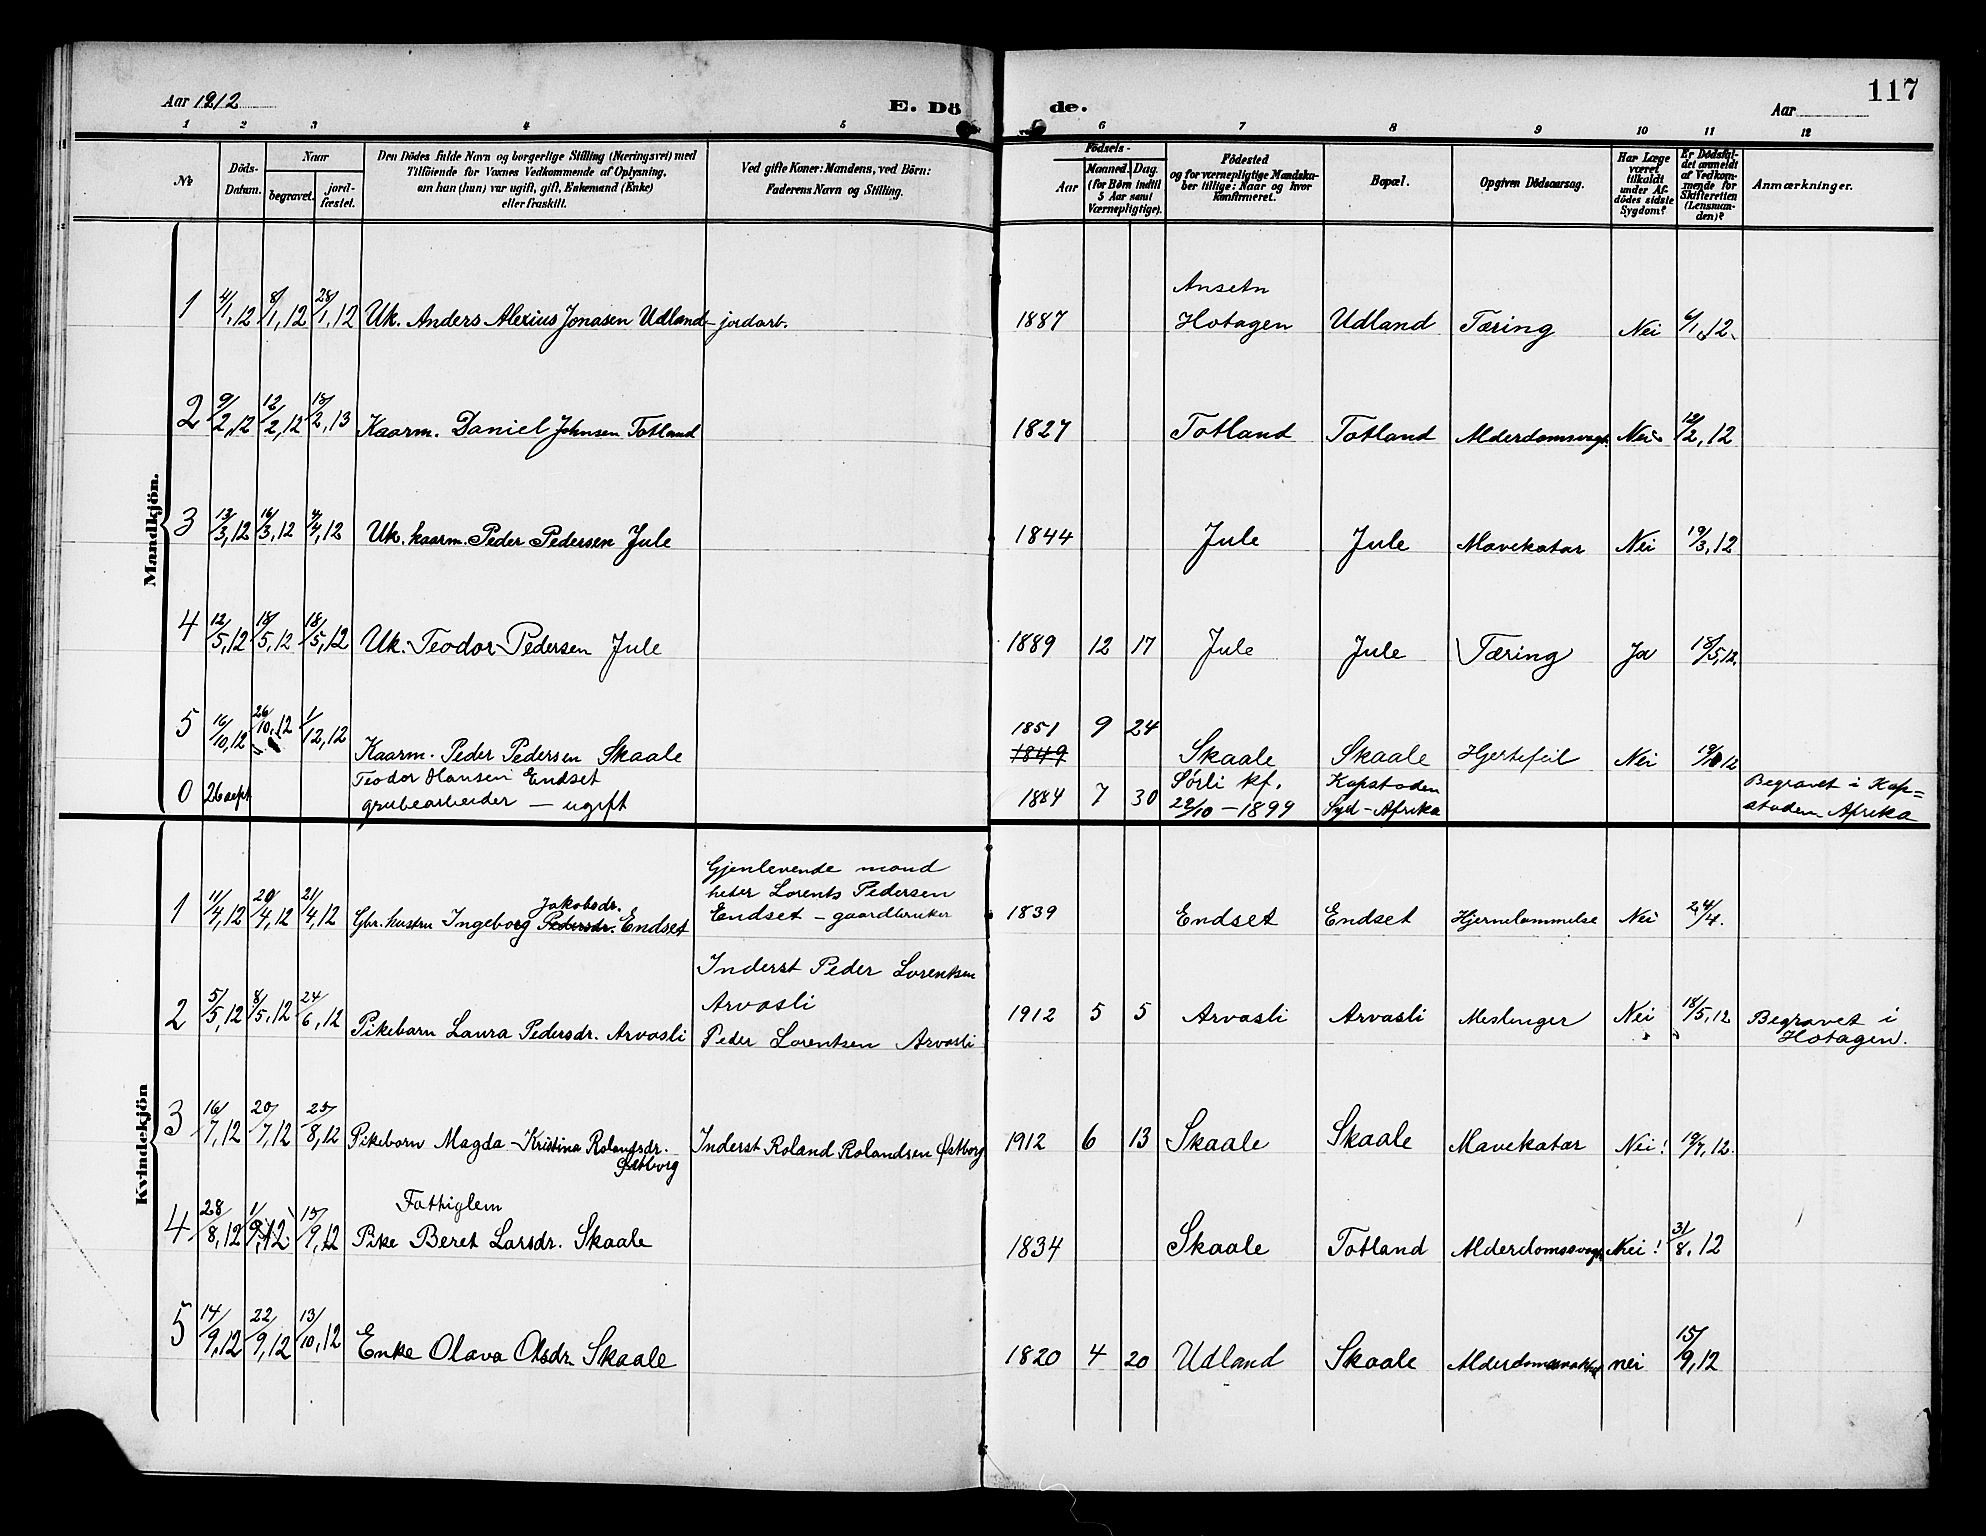 117
Aar 1912 E. Dö de. Aar
1 2 3 4 5 6 7 8 9 10 11 12
№
Döds-
Datum.
Naar
begravet. jord-
fæstet.
Den Dödes fulde Navn og borgerlige Stilling (Næringsvei) med
Tilföiende for Voxnes Vedkommende af Oplysning,
om han (hun) var ugift, gift, Enkemand (Enke)
eller fraskilt.
Ved gifte Koner: Mandens, ved Börn:
Faderens Navn og Stilling.
Födsels-
Aar
Maaned. Dag.
(for Börn indtil
5 Aar samt
Værnepligtige).
Födested
og for værnepligtige Mandska-
ber tillige: Naar og hvor
konfirmeret.
Bopæl.
Opgiven Dödsaarsag.
Har Læge
været
tilkaldt
under Af-
dödes sidste
Sygdom?
Er Dödsfal-
det anmeldt
af Vedkom-
mende for
Skifteretten
(Lensman-
den)?
Anmærkninger.
Mandkjön.
Ansetn
1 4/1,12 8/1,12 28/1,12 Uk. Anders Alexius Jonasen Udland - jordarb. 1887 Hotagen Udland Tæring Nei 6/1,12.
2 9/2,12 12/2,12 18/2,13 Kaarm. Daniel Johnsen Totland 1827 Totland Totland Alderdomssvagh. Nei 12/2,12
3 13/3,12 16/3,12 4/4,12 Uk. kaarm. Peder Pedersen Jule 1844 Jule Jule Mavekatar Nei 19/3,12
4 12/5,12 18/5,12 18/5,12 Uk. Teodor Pedersen Jule 1889 12 17 Jule Jule Tæring Ja 18/5,12.
5 16/10,12 26/10,12 1/12,12 Kaarm. Peder Pedersen Skaale 1851 9 24 Skaale Skaale Hjertefeil Nei 19/10 12
1849
0 26 sept Teodor Hansen Endset 1884 7 30 Sørli kf. Kapstaden Begravet i Kap=
grubearbeider — ugift 22/10 - 1899 Syd-Afrika staden Afrika
Kvindekjön
Gjenlevende mand
heter Lorents Pedersen
Jakobsdr.
1 11/4,12 20/4,12 21/4,12 Gbr. hustru Ingeborg Pedersdr. Endset Endset - gaardbruker 1839 Endset Endset Hjernelammelse Nei 24/4.
Inderst Peder Lorentsen
Arvasli
2 5/5,12 8/5,12 24/6,12 Pikebarn Laura Pedersdr. Arvasli Peder Lorentsen Arvasli 1912 5 5 Arvasli Arvasli Meslinger Nei 18/5,12 Begravet i
Hotagen.
3 16/7,12 20/7,12 25/8,12 Pikebarn Magda-Kristina Rolandsdr. Inderst Roland Rolandsen Østborg 1912 6 13 Skaale Skaale Mavekatar Nei! 19/7,12.
Østborg
Fattiglem
4 28/8,12 1/9,12 15/9,12 Pike Beret Larsdr. Skaale 1834 Skaale Totland Alderdomssvagh. Nei! 31/8,12
5 14/9,12 22/9,12 13/10,12 Enke Olava Olsdr Skaale 1820 4 20 Udland Skaale nei 15/9,12